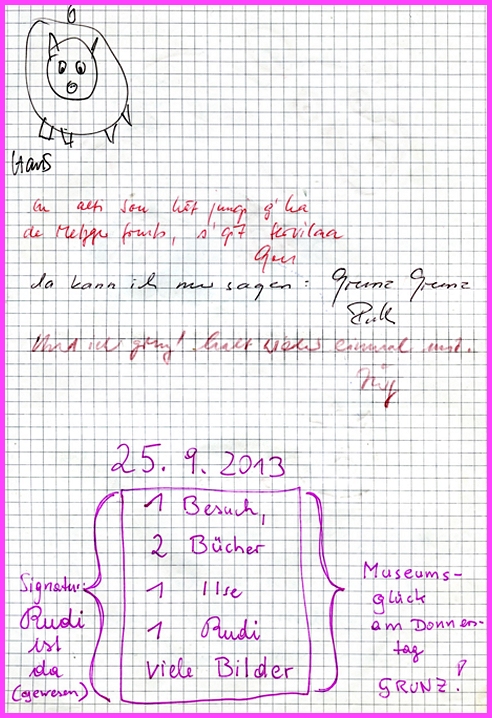 Hans
en alti Sou hät jungi g'ha
de Metzger
da kann ich nur sagen: Grunz Grunz
Und ich halt wieder einmal
25. 9. 2013
1 Besuch,
2 Bücher
1 Ilse
1 Rudi
viele Bilder
Signatur:
Rudi
ist
da
(gewesen)
Museums-
glück
am Donners-
tag
GRUNZ!